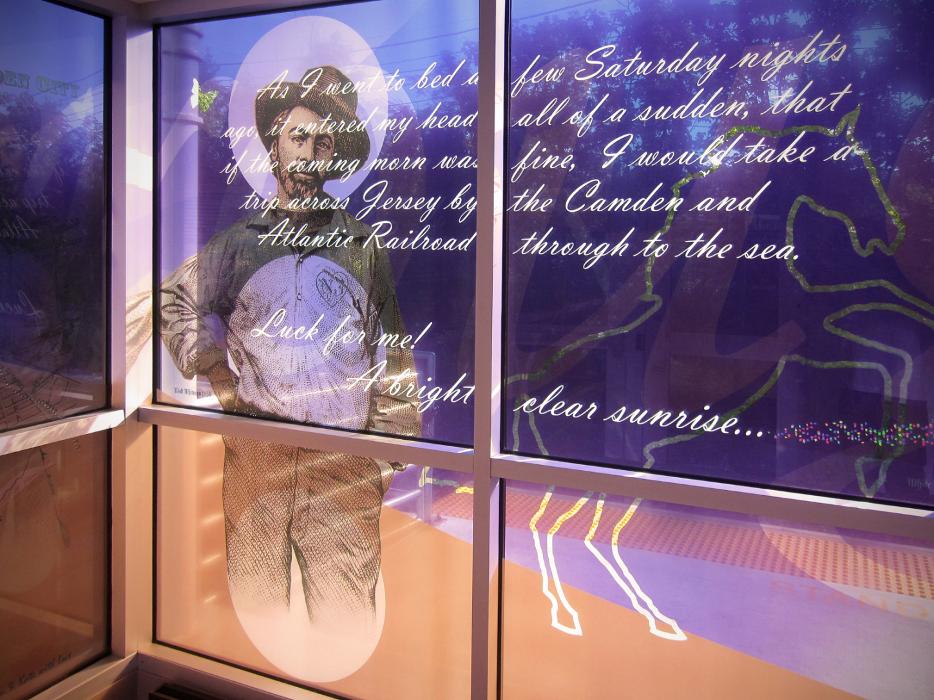 As I went to bed a few Saturday nights
ago, it entered my head all of a sudden, that
if the coming morn was fine, I would take a
trip across Jersey by the Camden and
Atlantic Railroad through to the sea.
Luck for me!
A bright clear sunrise...